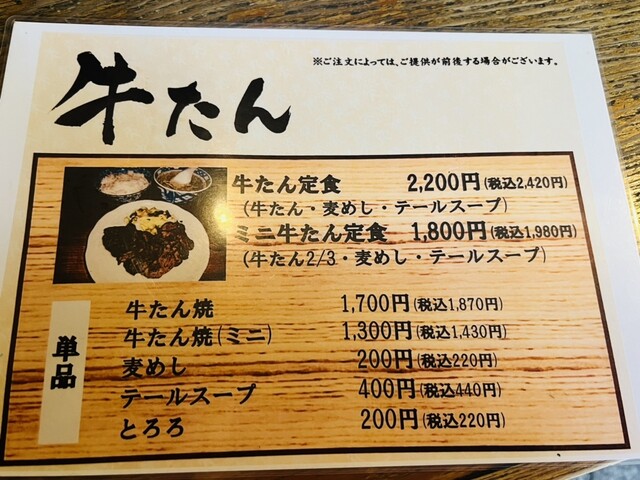 ※ご注文によっては、ご提供が前後する場合がございます。
牛たん
牛たん定食 2,200円(税込2,420円)
(牛たん・麦めし・テールスープ)
ミニ牛たん定食 1,800円(税込1,980円)
(牛たん2/3・麦めし・テールスープ)
単品
牛たん焼 1,700円(税込1,870円)
牛たん焼(ミニ) 1,300円(税込1,430円)
麦めし 200円(税込220円)
テールスープ 400円(税込440円)
とろろ 200円(税込220円)